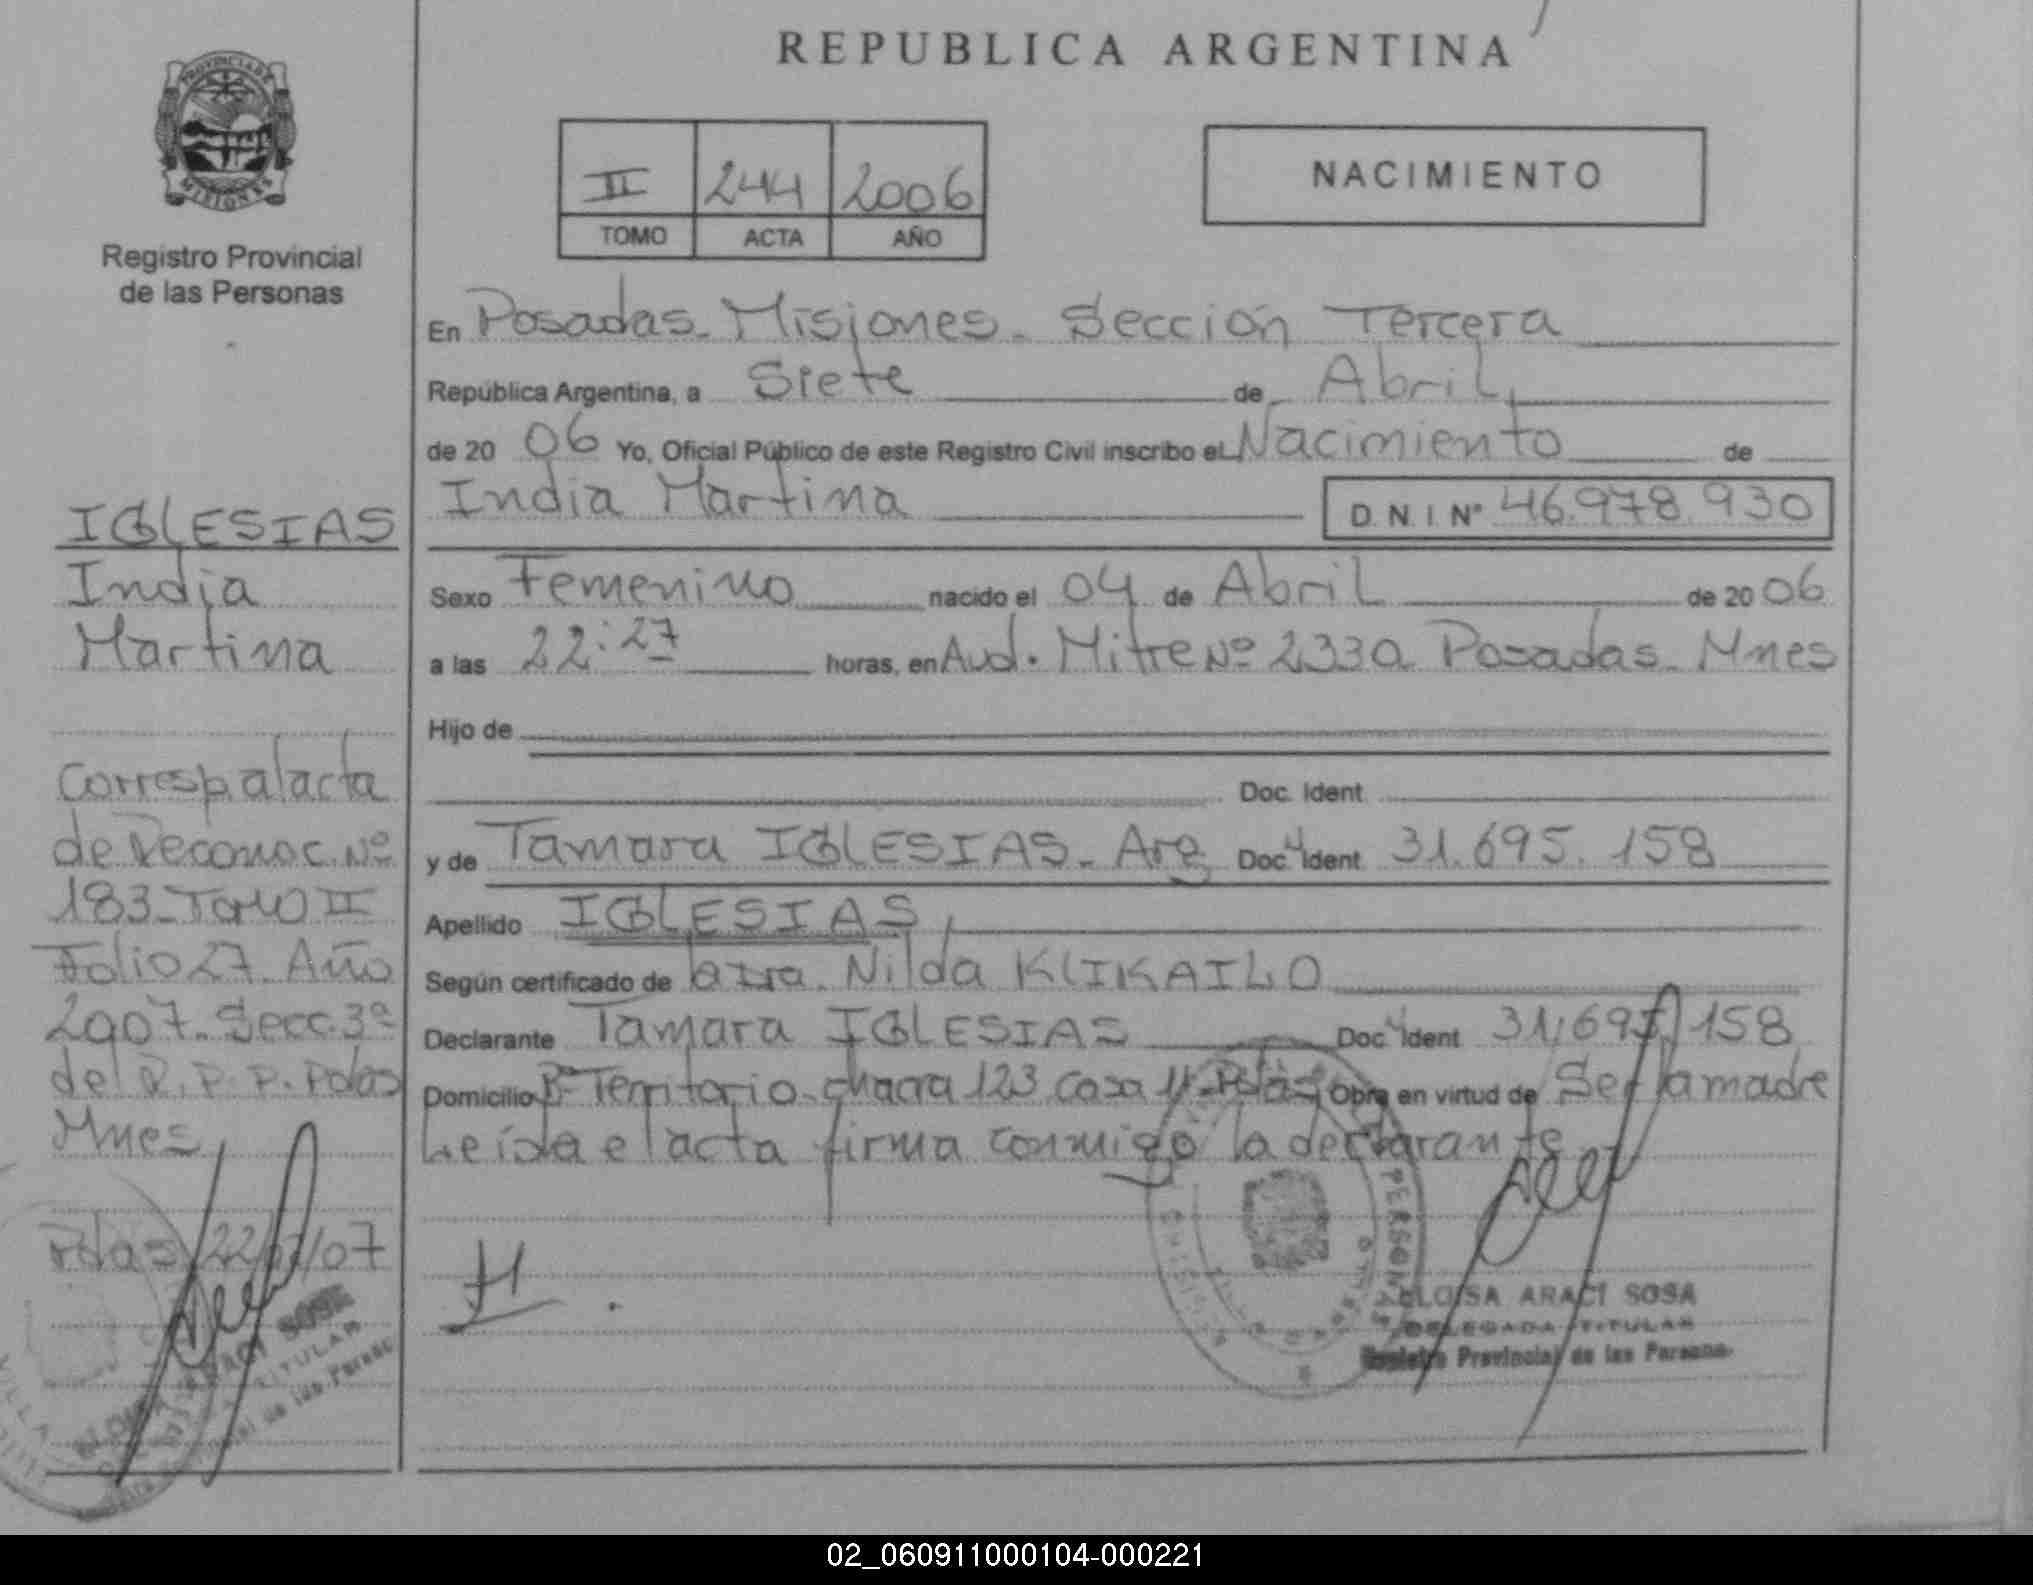 REPUBLICA ARGENTINA
PROVINCIA DE
MISIONES
Registro Provincial
de las Personas
II 244 2006
TOMO ACTA AÑO
NACIMIENTO
En Posadas - Misiones - Sección Tercera
República Argentina, a Siete de Abril,
de 20 06 Yo, Oficial Público de este Registro Civil inscribo el Nacimiento de
India Martina D.N.I Nº 46.978.930
Sexo Femenino nacido el 04 de Abril de 20 06
a las 22:27 horas, en Avd. Mitre Nº 2330 Posadas - Mnes
Hijo de
Doc. Ident.
y de Tamara IGLESIAS - Arg Doc. Ident. 31.695.158
Apellido IGLESIAS,
Según certificado de la Dra. Nilda KLIKAILO
Declarante Tamara IGLESIAS Doc. Ident 31.695.158
Domicilio Bº Territorio - chacra 123 casa 11 - Pdas Obra en virtud de Ser la madre
Leída el acta firma conmigo la declarante
ELOISA ARACI SOSA
DELEGADA TITULAR
Registro Provincial de las Personas
IGLESIAS
India
Martina
Corresp. al acta
de Reconoc. Nº
183 - Tomo II
Folio 27 - Año
2007 - Secc. 3ª
del R. P. P. Pdas
Mnes,
Pdas, 22/ /07
ARACI SOSA
TITULAR
02_060911000104-000221